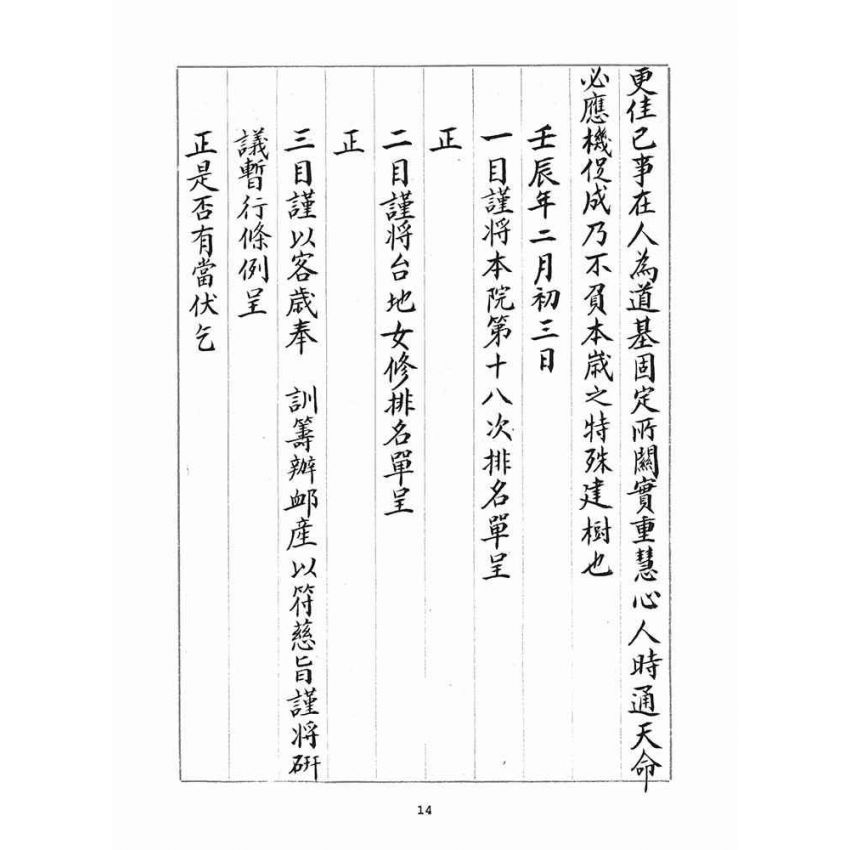 更佳已事在人為道基固定所關實重慧心人時通天命
必應機促成乃不負本歲之特殊建樹也
壬辰年二月初三日
一目謹將本院第十八次排名單呈
正
二目謹將台地女修排名單呈
正
三目謹以客歲奉　訓籌辦卹產以符慈旨謹將研
議暫行條例呈
正是否有當伏乞
14